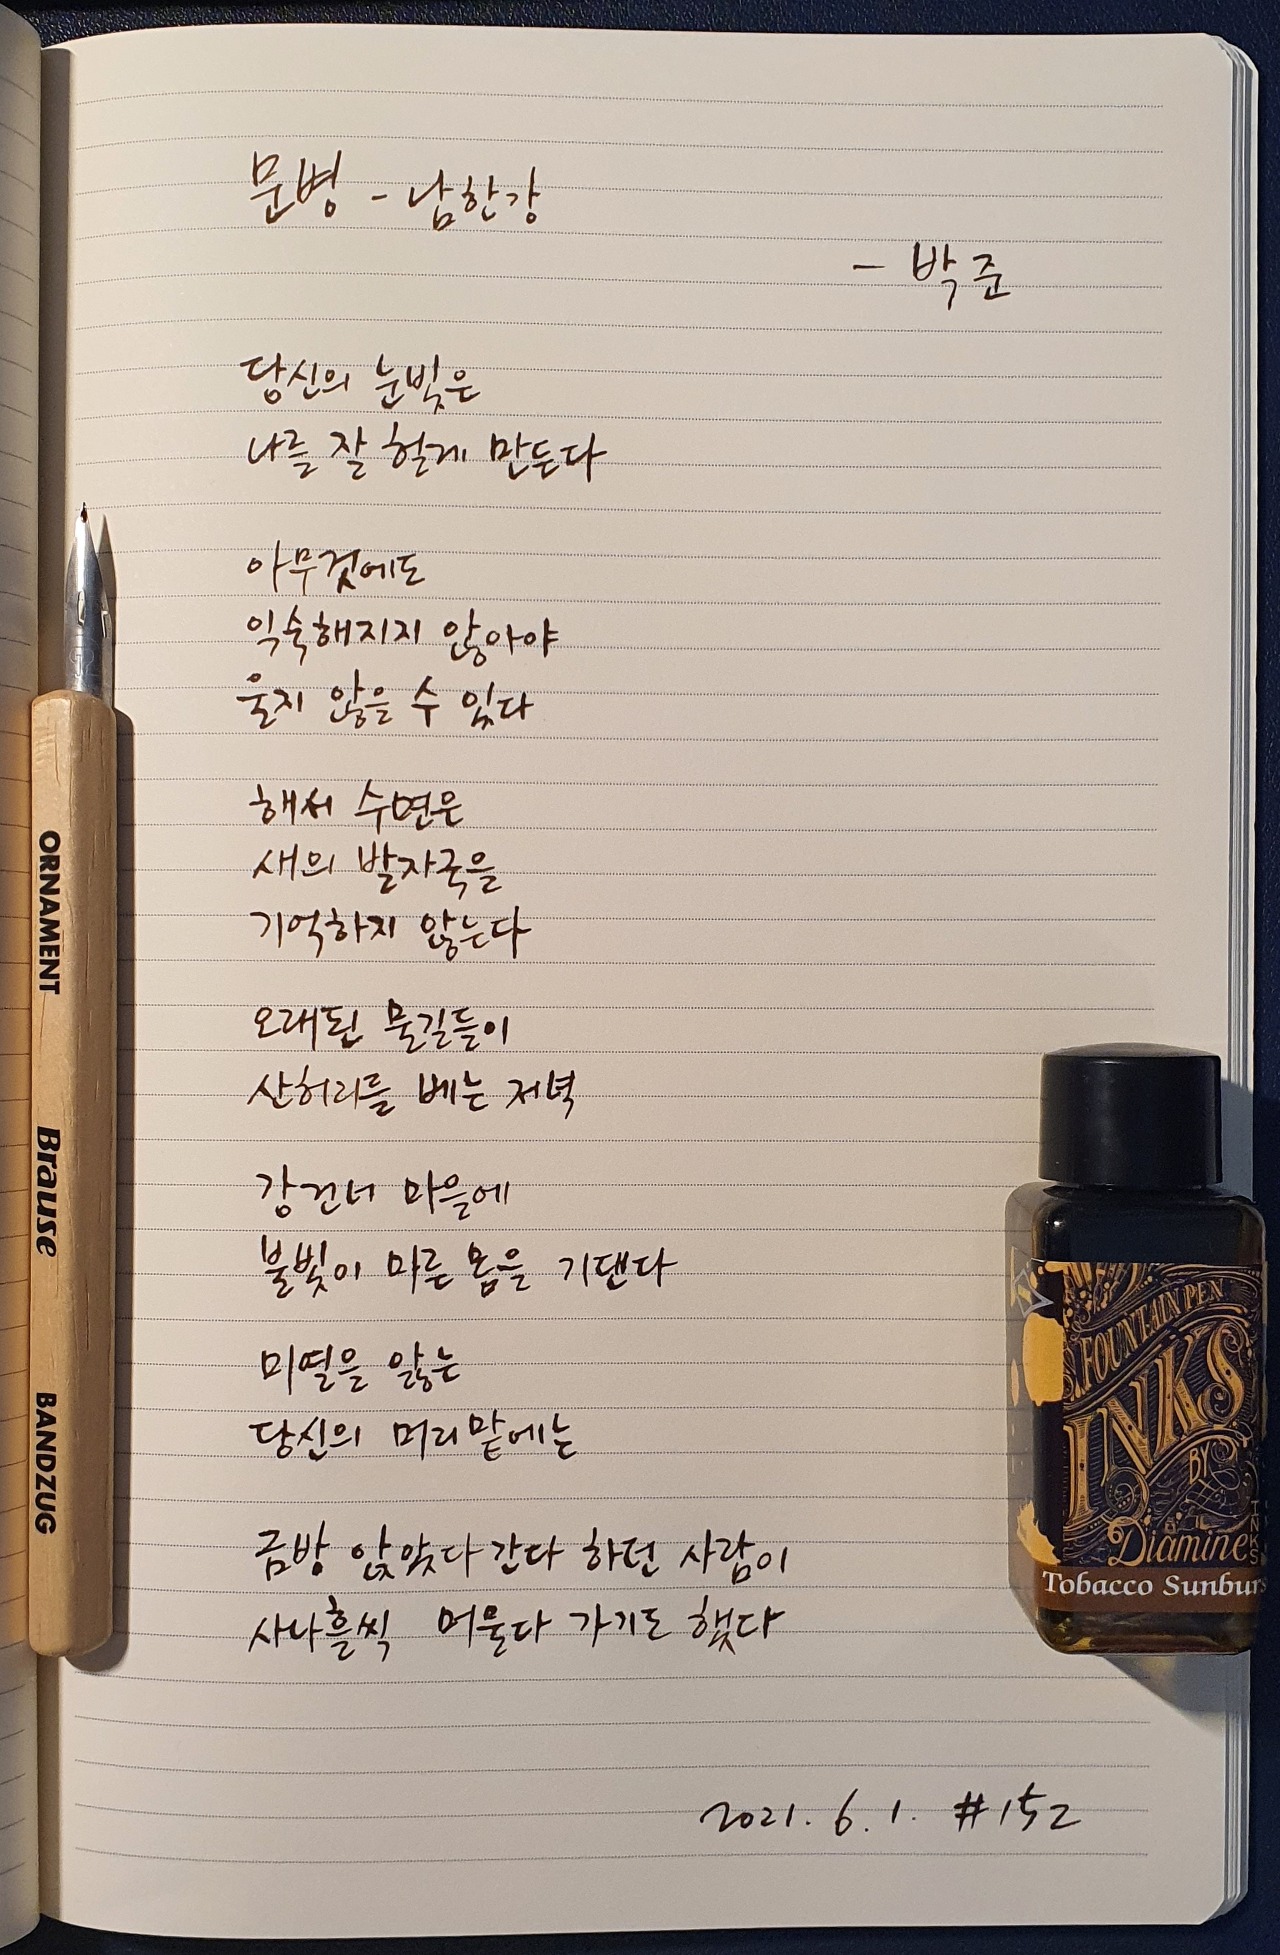 문병 - 남한강
- 박준
당신의 눈빛은
나를 잘 헐게 만든다
아무것에도
익숙해지지 않아야
울지 않을 수 있다
해서 수면은
새의 발자국을
기억하지 않는다
오래된 물길들이
산허리를 베는 저녁
강 건너 마을에
불빛이 마른 몸을 기댄다
미열을 앓는
당신의 머리맡에는
금방 앉았다 간다 하던 사람이
사나흘씩 머물다 가기도 했다
2021. 6. 1. #152
ORNAMENT
Brause
BANDZUG
FOUNTAIN PEN
INKS
BY
Diamine
Tobacco Sunburs